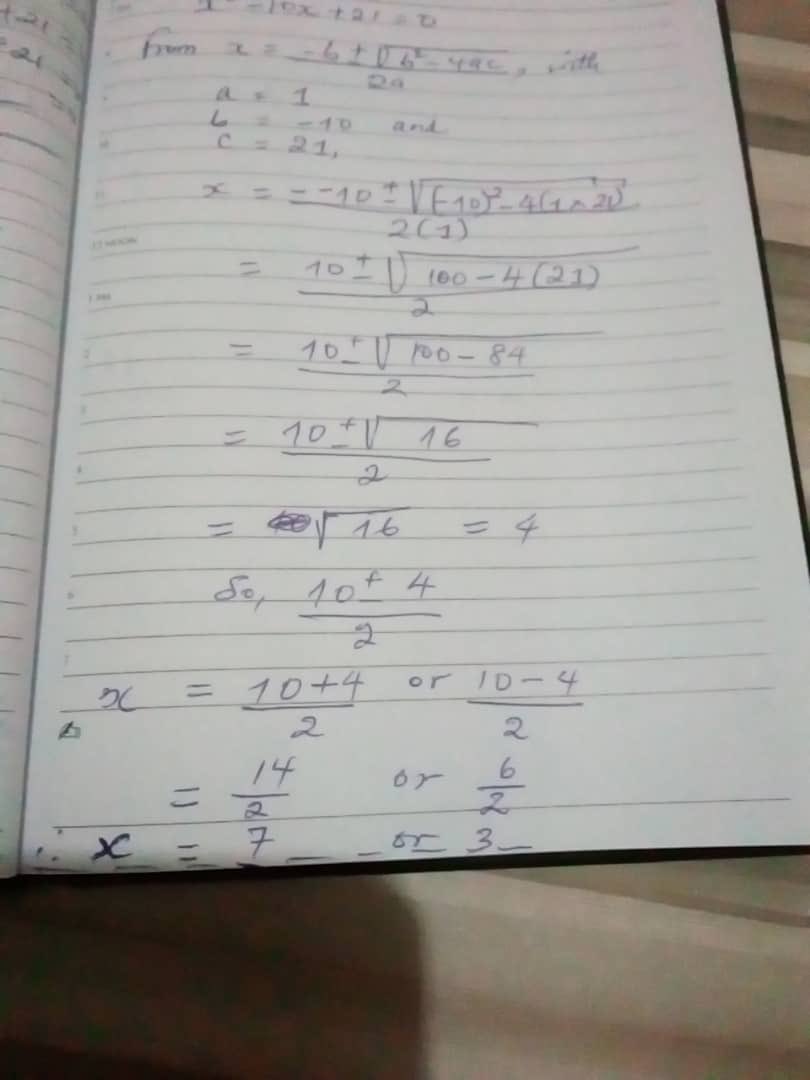 x² - 10x + 21 = 0
from x = -b ± √b² - 4ac, with
2a
a = 1
b = -10 and
c = 21,
x = - -10 ± √(-10)² - 4(1 × 21)
2(1)
12 NOON
= 10 ± √100 - 4(21)
2
1 PM
= 10 ± √100 - 84
2
= 10 ± √16
2
= √16 = 4
So, 10 ± 4
2
x = 10+4 or 10-4
2 2
= 14 or 6
2 2
∴ x = 7 or 3